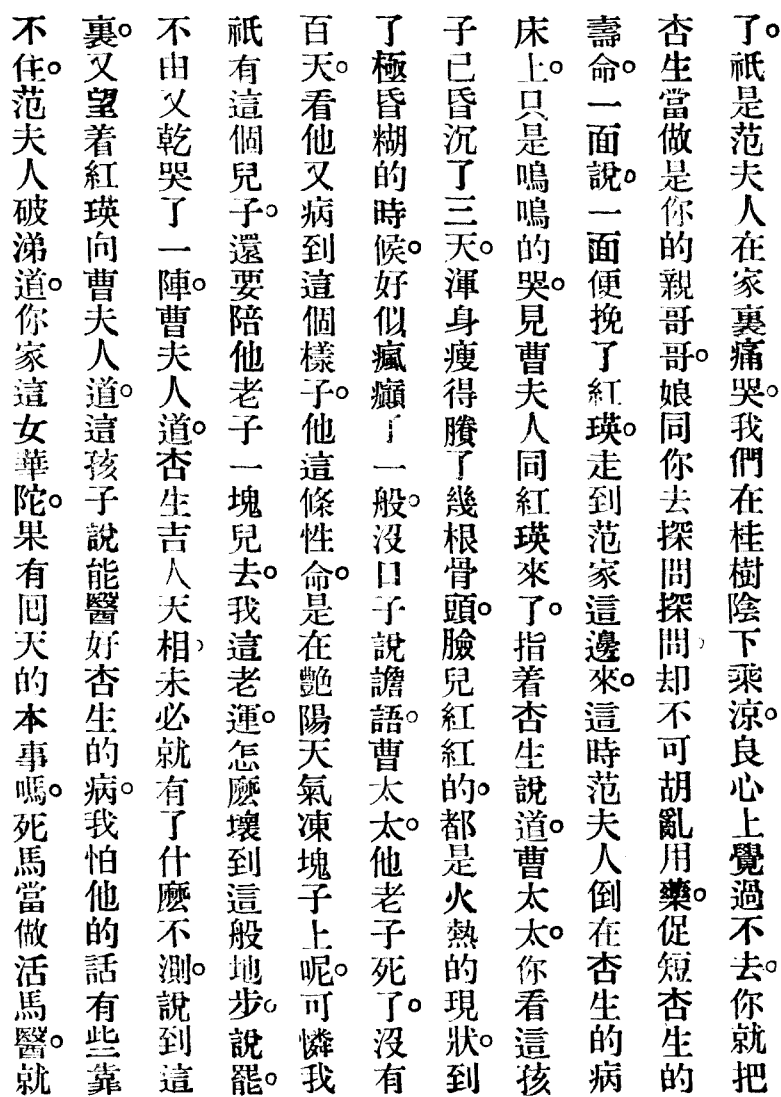 了。祇是范夫人在家裏痛哭。我們在桂樹陰下乘涼。良心上覺過不去。你就把
杏生當做是你的親哥哥。娘同你去探問探問、却不可胡亂用藥。促短杏生的
壽命。一面說。一面便挽了紅瑛。走到范家這邊來。這時范夫人倒在杏生的病
床上。只是嗚嗚的哭。見曹夫人同紅瑛來了。指着杏生說道。曹太太。你看這孩
子已昏沉了三天。渾身瘦得賸了幾根骨頭。臉兒紅紅的。都是火熱的現狀。到
了極昏糊的時候。好似瘋癲了一般。沒口子說譫語。曹太太。他老子死了。沒有
百天。看他又病到這個樣子。他這條性命。是在艷陽天氣凍塊子上呢。可憐我
祇有這個兒子。還要陪他老子一塊兒去。我這老運。怎麽壞到這般地步。說罷。
不由又乾哭了一陣。曹夫人道。杏生吉人天相、未必就有了什麽不測。說到這
裏。又望着紅瑛向曹夫人道。這孩子說能醫好杏生的病。我怕他的話有些靠
不住。范夫人破涕道。你家這女華陀。果有囘天的本事嗎。死馬當做活馬醫。就